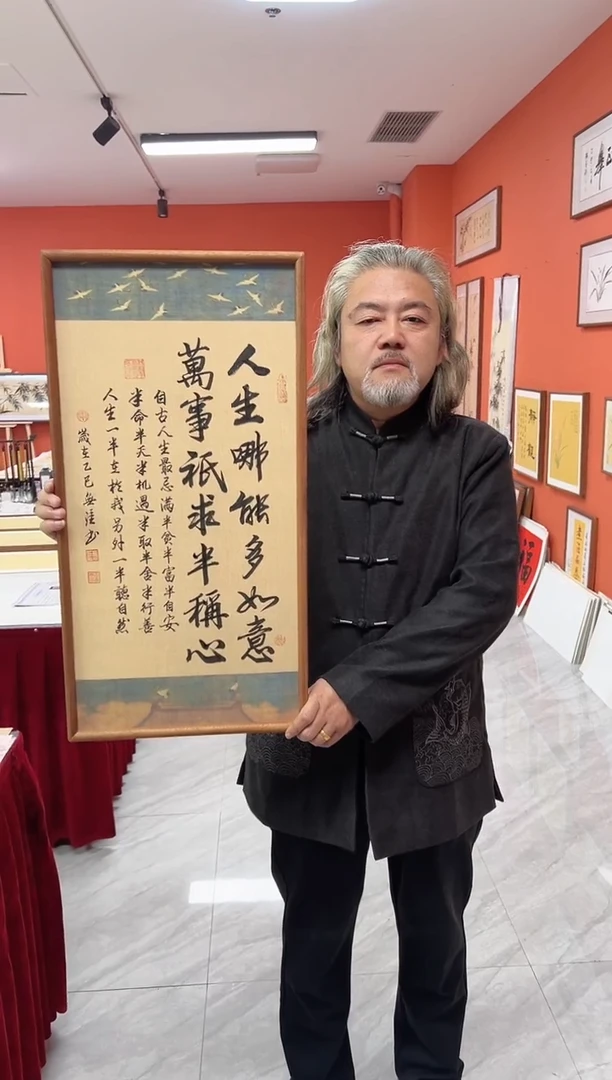 人生哪能多如意
萬事祇求半稱心
自古人生最忌满半贫半富半自安
半命半天半机遇半取半舍半行善
人生一半在於我另外一半聽自然
歲在乙巳书
福